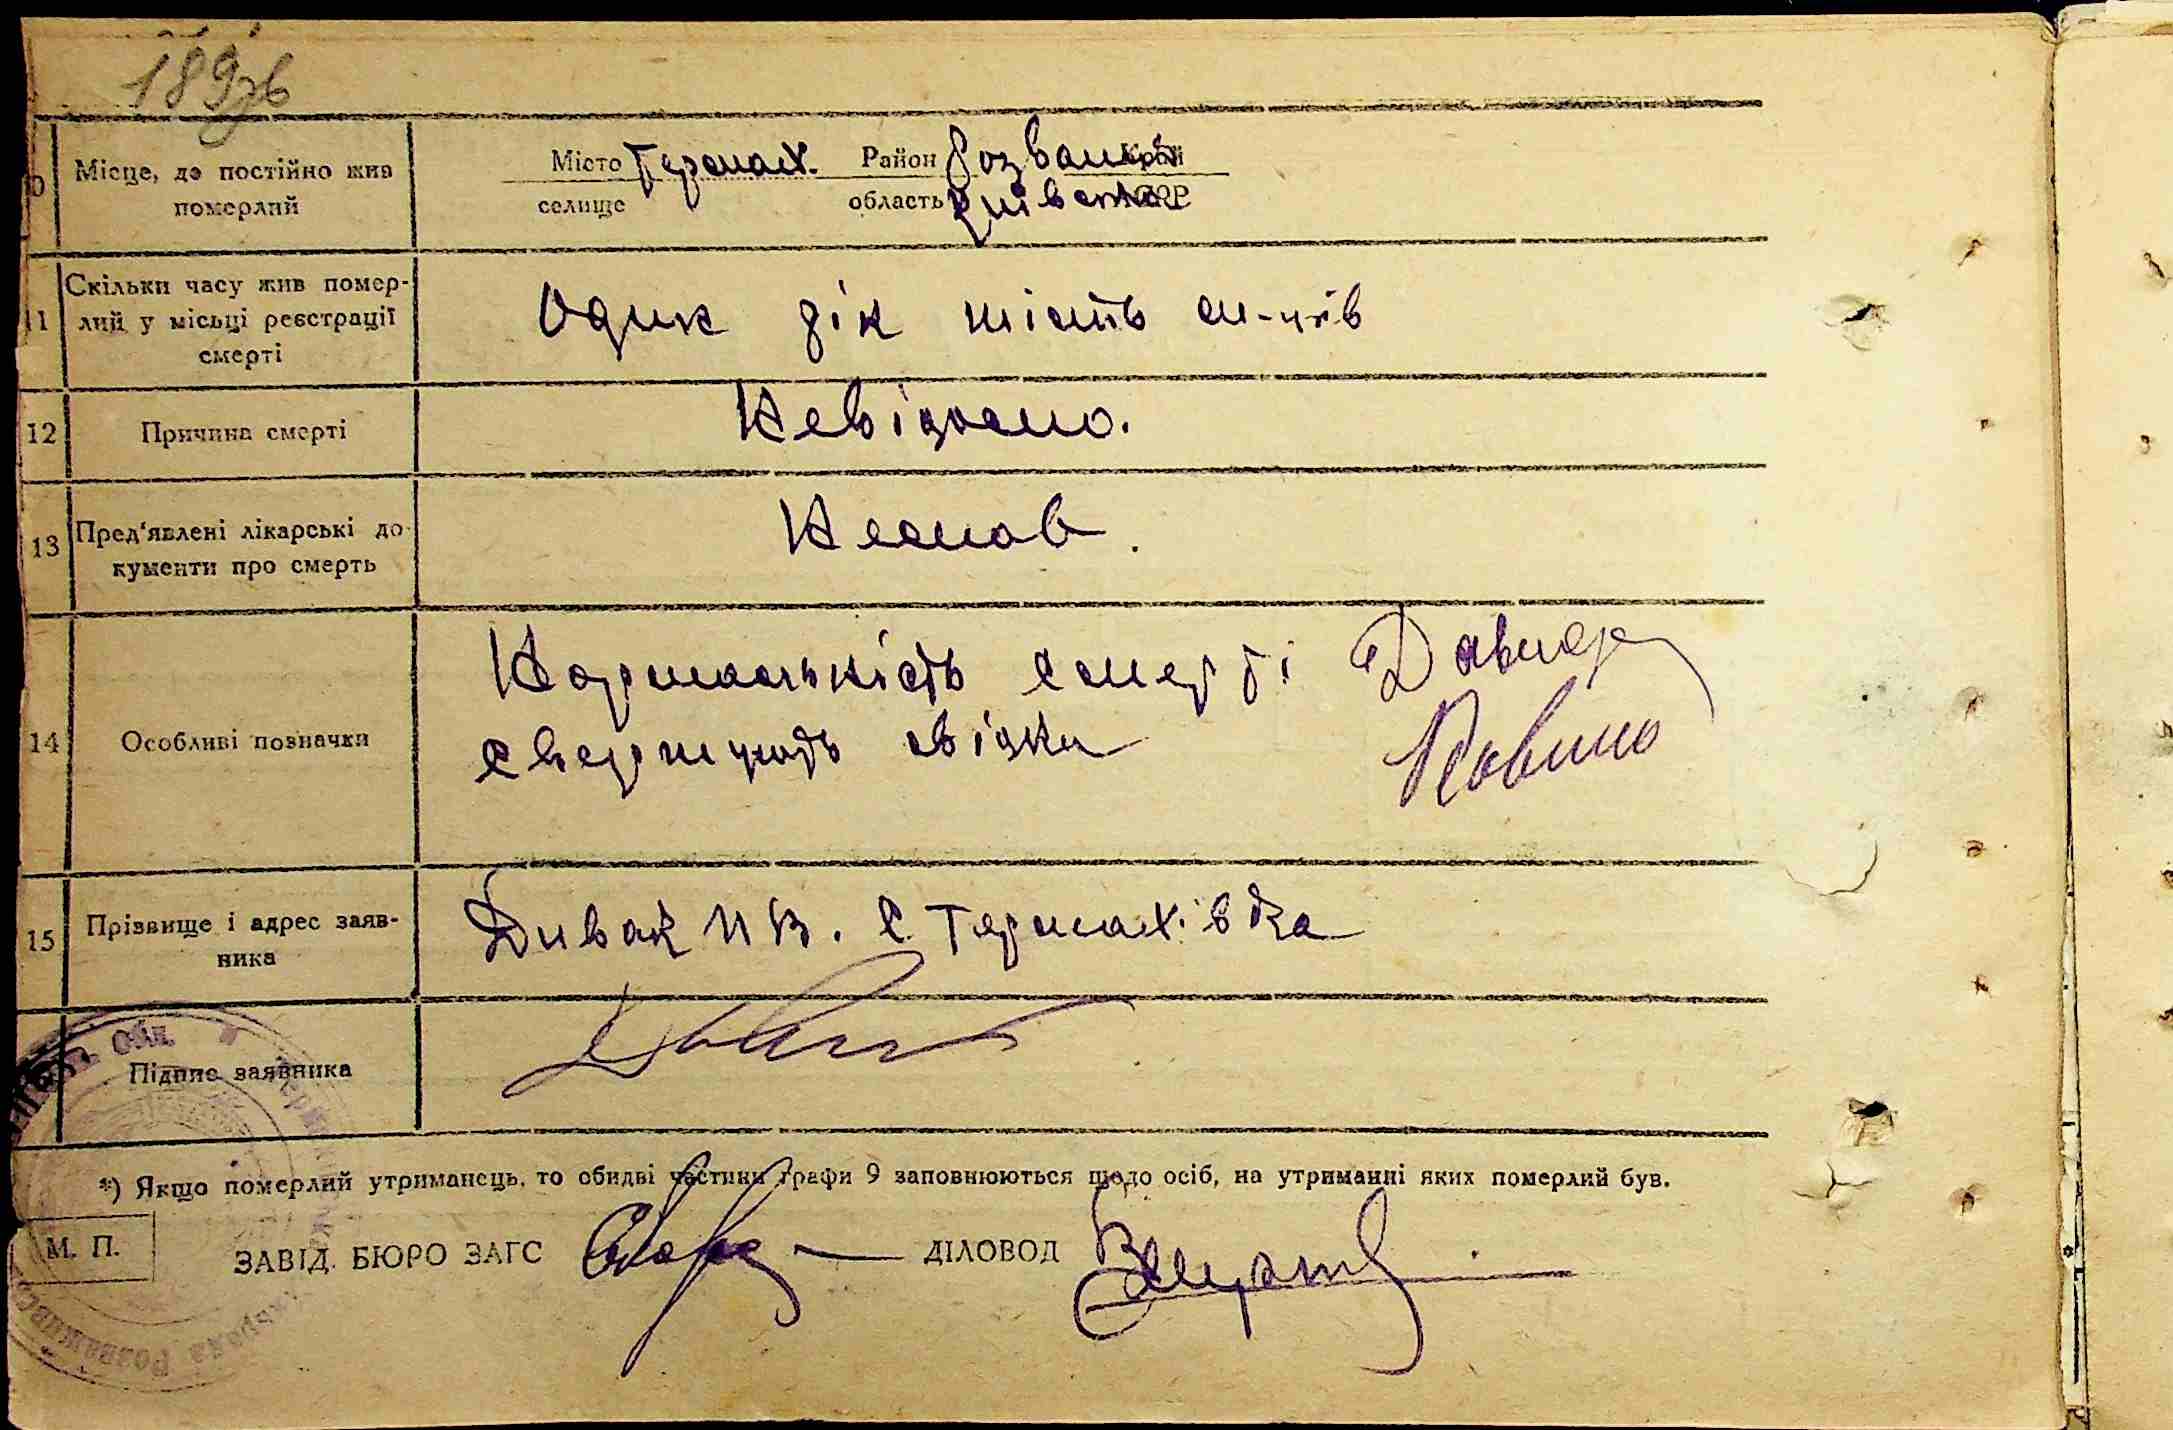 189зв
Місце, де постійно жив
померлий
Місто Термах. Район Розваж край
селище область Київська СРР
11 Скільки часу жив помер-
лий у місьці реєстрації
смерті
Один рік шість м-ців
12 Причина смерті Невідомо.
13 Пред'явлені лікарські до-
кументи про смерть
Немає.
14 Особливі позначки
Нормальність смерті
ствержують свідки
15 Прізвище і адрес заяв-
ника
Дивак И В. с. Термахівка
Підпис заявника
*) Якщо померлий утриманець, то обидві частини графи 9 заповнюються щодо осіб, на утриманні яких померлий був.
М. П. ЗАВІД. БЮРО ЗАГС ДІЛОВОД